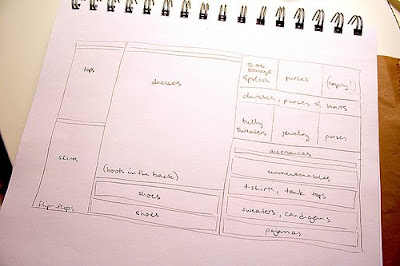 tops
skirts
flip flops
dresses
(boots in the back)
shoes
shoes
storage
purses
(empty!)
clutches, purses & hats
bulky
sweaters
jewelry
purses
accessories
unmentionables
t-shirts, tank tops
sweaters, cardigans
pajamas